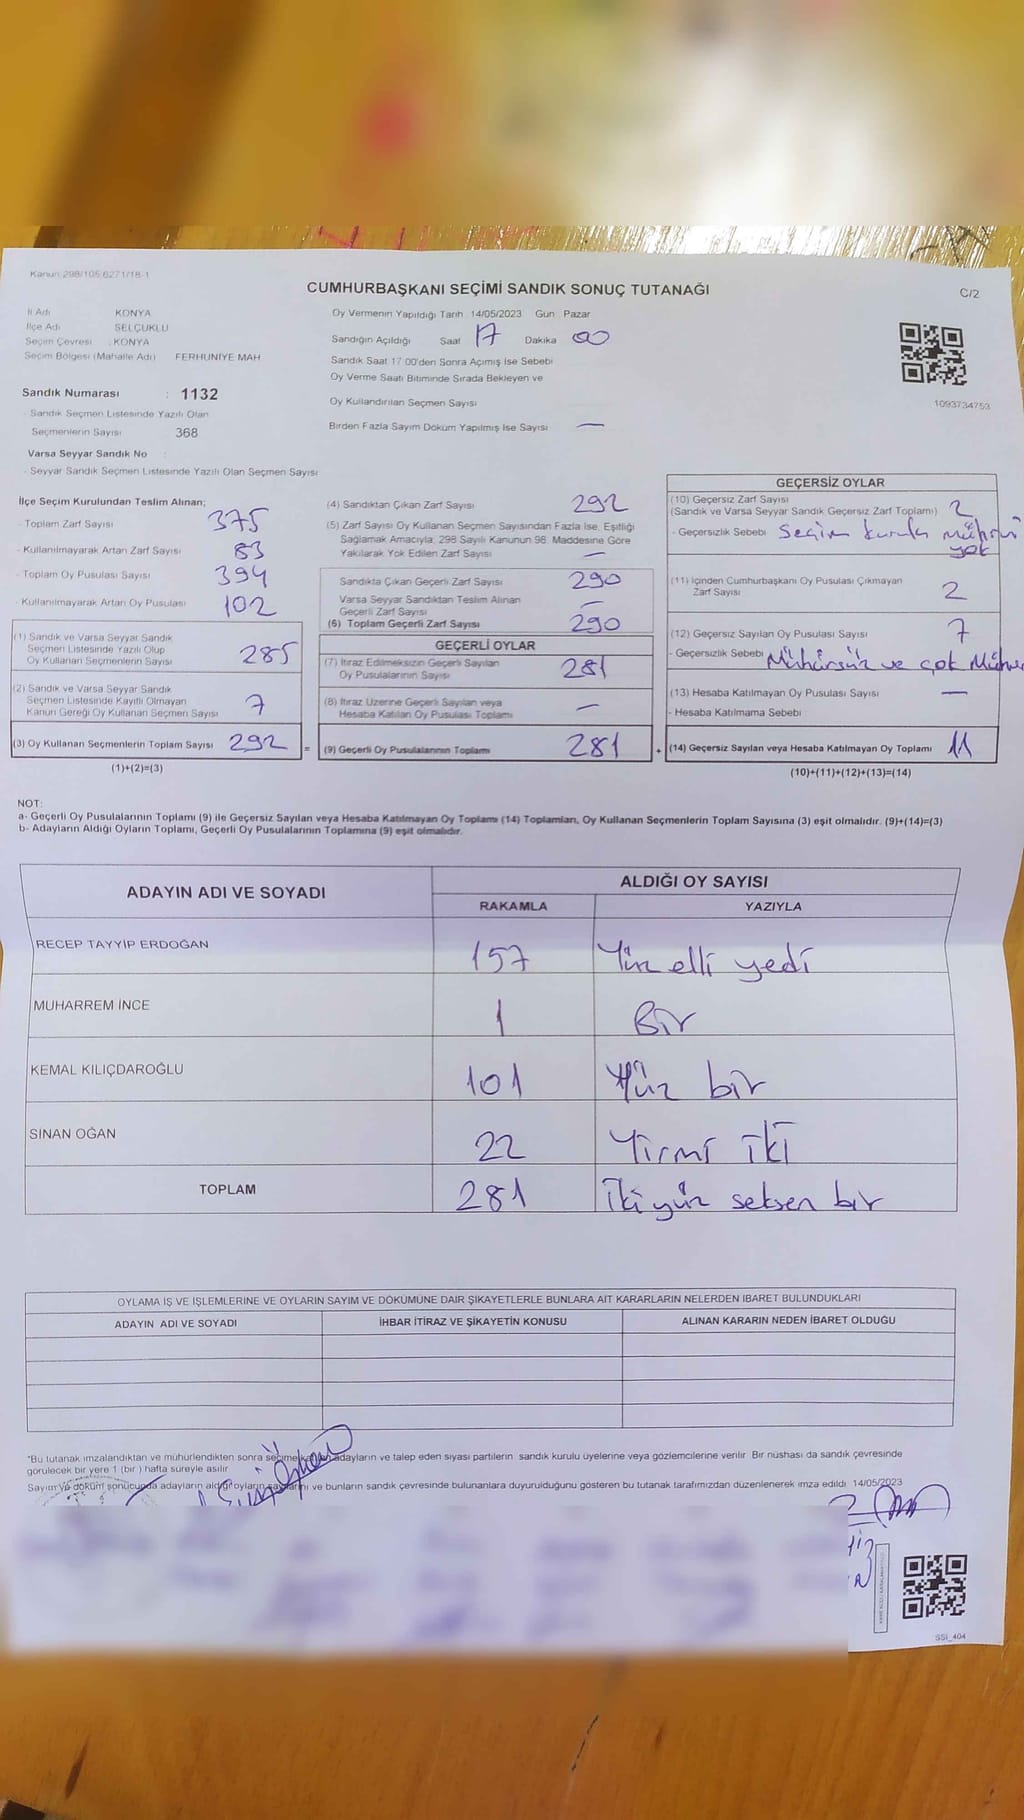 Kanun 298/105 6271/18-1
CUMHURBAŞKANI SEÇİMİ SANDIK SONUÇ TUTANAĞI
C/2
İl Adı KONYA
İlçe Adı SELÇUKLU
Seçim Çevresi : KONYA
Seçim Bölgesi (Mahalle Adı) FERHUNİYE MAH
Oy Vermenin Yapıldığı Tarih 14/05/2023 Gün Pazar
Sandığın Açıldığı Saat 17 Dakika 00
Sandık Saat 17 00'den Sonra Açımış İse Sebebi
Oy Verme Saati Bitiminde Sırada Bekleyen ve
Oy Kullandırılan Seçmen Sayısı
Birden Fazla Sayım Döküm Yapılmış İse Sayısı —
1093734753
Sandık Numarası : 1132
- Sandık Seçmen Listesinde Yazılı Olan
Seçmenlerin Sayısı 368
Varsa Seyyar Sandık No :
- Seyyar Sandık Seçmen Listesinde Yazılı Olan Seçmen Sayısı
İlçe Seçim Kurulundan Teslim Alınan;
- Toplam Zarf Sayısı 375
- Kullanılmayarak Artan Zarf Sayısı 83
- Toplam Oy Pusulası Sayısı 394
- Kullanılmayarak Artan Oy Pusulası 102
(1) Sandık ve Varsa Seyyar Sandık
Seçmen Listesinde Yazılı Olup
Oy Kullanan Seçmenlerin Sayısı 285
(2) Sandık ve Varsa Seyyar Sandık
Seçmen Listesinde Kayıtlı Olmayan
Kanun Gereği Oy Kullanan Seçmen Sayısı 7
(3) Oy Kullanan Seçmenlerin Toplam Sayısı 292 =
(1)+(2)=(3)
(4) Sandıktan Çıkan Zarf Sayısı 292
(5) Zarf Sayısı Oy Kullanan Seçmen Sayısından Fazla İse, Eşitliği
Sağlamak Amacıyla, 298 Sayılı Kanunun 98. Maddesine Göre
Yakılarak Yok Edilen Zarf Sayısı —
Sandıkta Çıkan Geçerli Zarf Sayısı 290
Varsa Seyyar Sandıktan Teslim Alınan
Geçerli Zarf Sayısı —
(6) Toplam Geçerli Zarf Sayısı 290
GEÇERLİ OYLAR
(7) İtiraz Edilmeksizin Geçerli Sayılan
Oy Pusulalarının Sayısı 281
(8) İtiraz Üzerine Geçerli Sayılan veya
Hesaba Katılan Oy Pusulası Toplamı —
(9) Geçerli Oy Pusulalarının Toplamı 281 +
GEÇERSİZ OYLAR
(10) Geçersiz Zarf Sayısı
(Sandık ve Varsa Seyyar Sandık Geçersiz Zarf Toplamı) 2
- Geçersizlik Sebebi Seçim kurulu mührü
yok
(11) İçinden Cumhurbaşkanı Oy Pusulası Çıkmayan
Zarf Sayısı 2
(12) Geçersiz Sayılan Oy Pusulası Sayısı 7
- Geçersizlik Sebebi Mühürsüz ve çok Mühür
(13) Hesaba Katılmayan Oy Pusulası Sayısı —
- Hesaba Katılmama Sebebi
(14) Geçersiz Sayılan veya Hesaba Katılmayan Oy Toplamı 11
(10)+(11)+(12)+(13)=(14)
NOT:
a- Geçerli Oy Pusulalarının Toplamı (9) ile Geçersiz Sayılan veya Hesaba Katılmayan Oy Toplamı (14) Toplamları, Oy Kullanan Seçmenlerin Toplam Sayısına (3) eşit olmalıdır. (9)+(14)=(3)
b- Adayların Aldığı Oyların Toplamı, Geçerli Oy Pusulalarının Toplamına (9) eşit olmalıdır.
ADAYIN ADI VE SOYADI ALDIĞI OY SAYISI
RAKAMLA YAZIYLA
RECEP TAYYİP ERDOĞAN 157 Yüz elli yedi
MUHARREM İNCE 1 Bir
KEMAL KILIÇDAROĞLU 101 Yüz bir
SİNAN OĞAN 22 Yirmi iki
TOPLAM 281 İki yüz seksen bir
OYLAMA İŞ VE İŞLEMLERİNE VE OYLARIN SAYIM VE DÖKÜMÜNE DAİR ŞİKAYETLERLE BUNLARA AİT KARARLARIN NELERDEN İBARET BULUNDUKLARI
ADAYIN ADI VE SOYADI İHBAR İTİRAZ VE ŞİKAYETİN KONUSU ALINAN KARARIN NEDEN İBARET OLDUĞU
*Bu tutanak imzalandıktan ve mühürlendikten sonra seçime katılan adayların ve talep eden siyasi partilerin sandık kurulu üyelerine veya gözlemcilerine verilir Bir nüshası da sandık çevresinde
görülecek bir yere 1 (bir ) hafta süreyle asılır
Sayım ve döküm sonucunda adayların aldığı oyların sayılarını ve bunların sandık çevresinde bulunanlara duyurulduğunu gösteren bu tutanak tarafımızdan düzenlenerek imza edildi 14/05/2023
SSİ_404